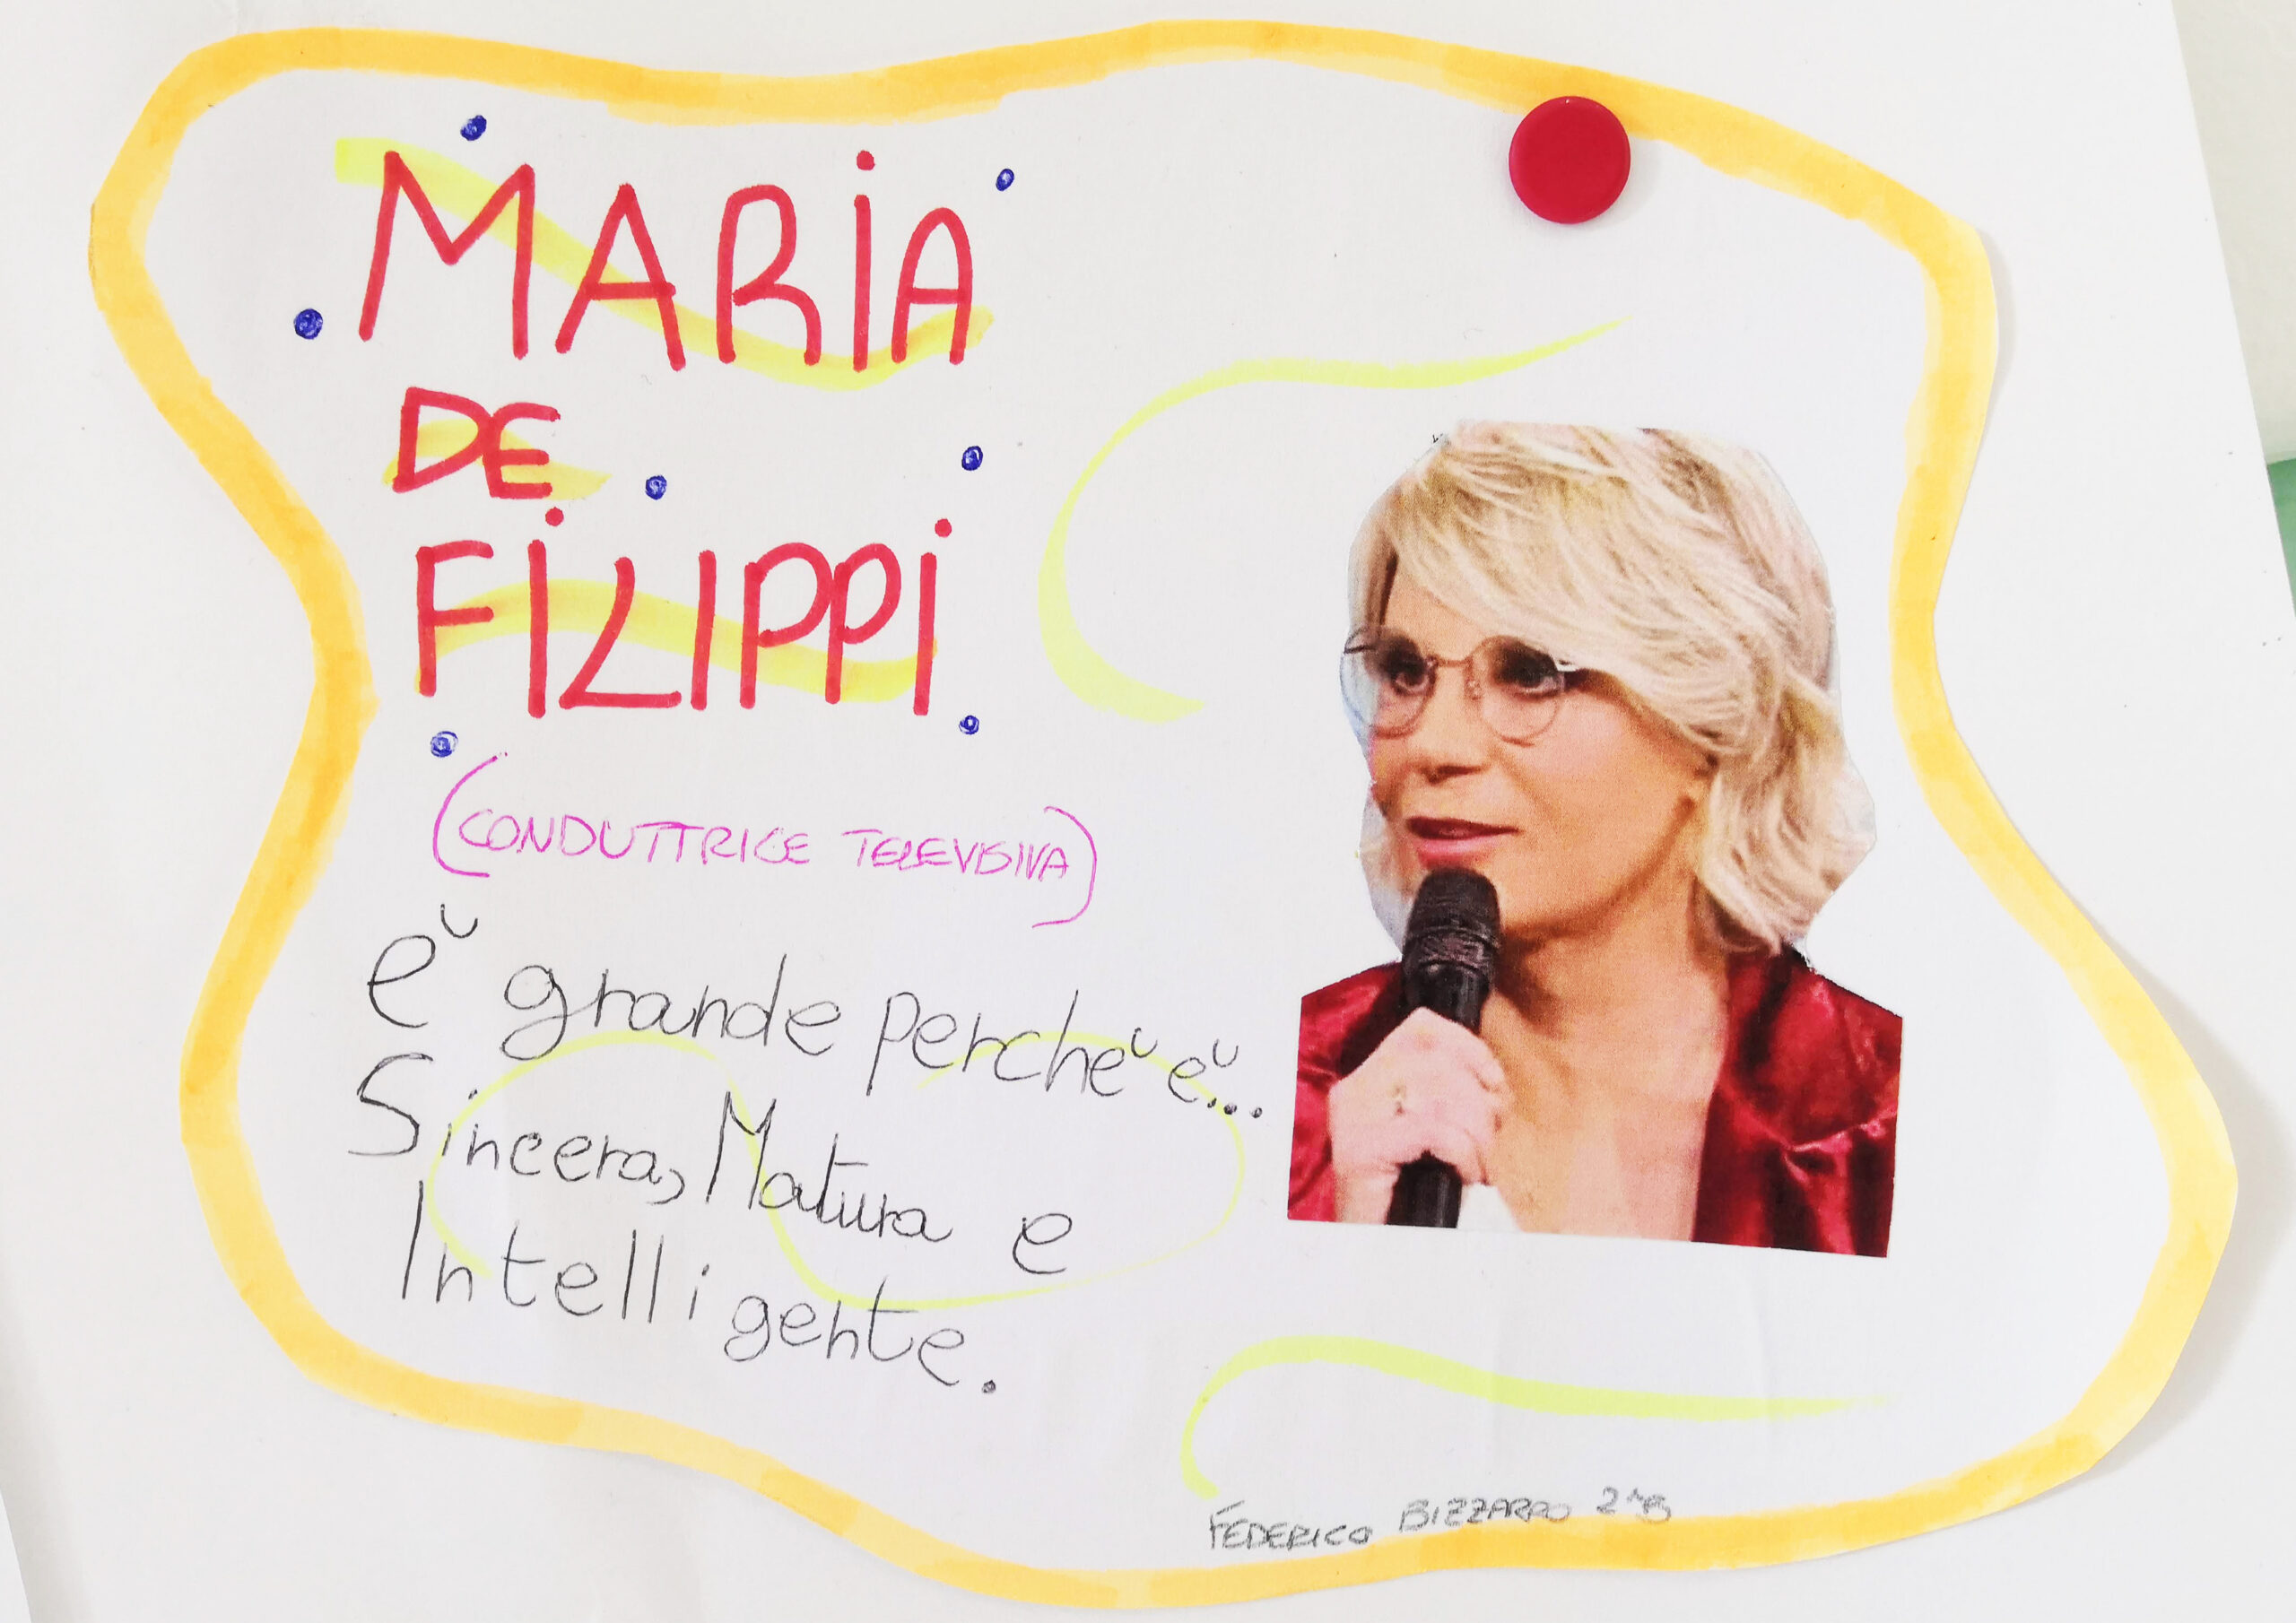 MARIA
DE
FILIPPI
(CONDUTTRICE TELEVISIVA)
È grande perchè è...
Sincera, Matura e
Intelligente.
FEDERICO BIZZARRO 2^B